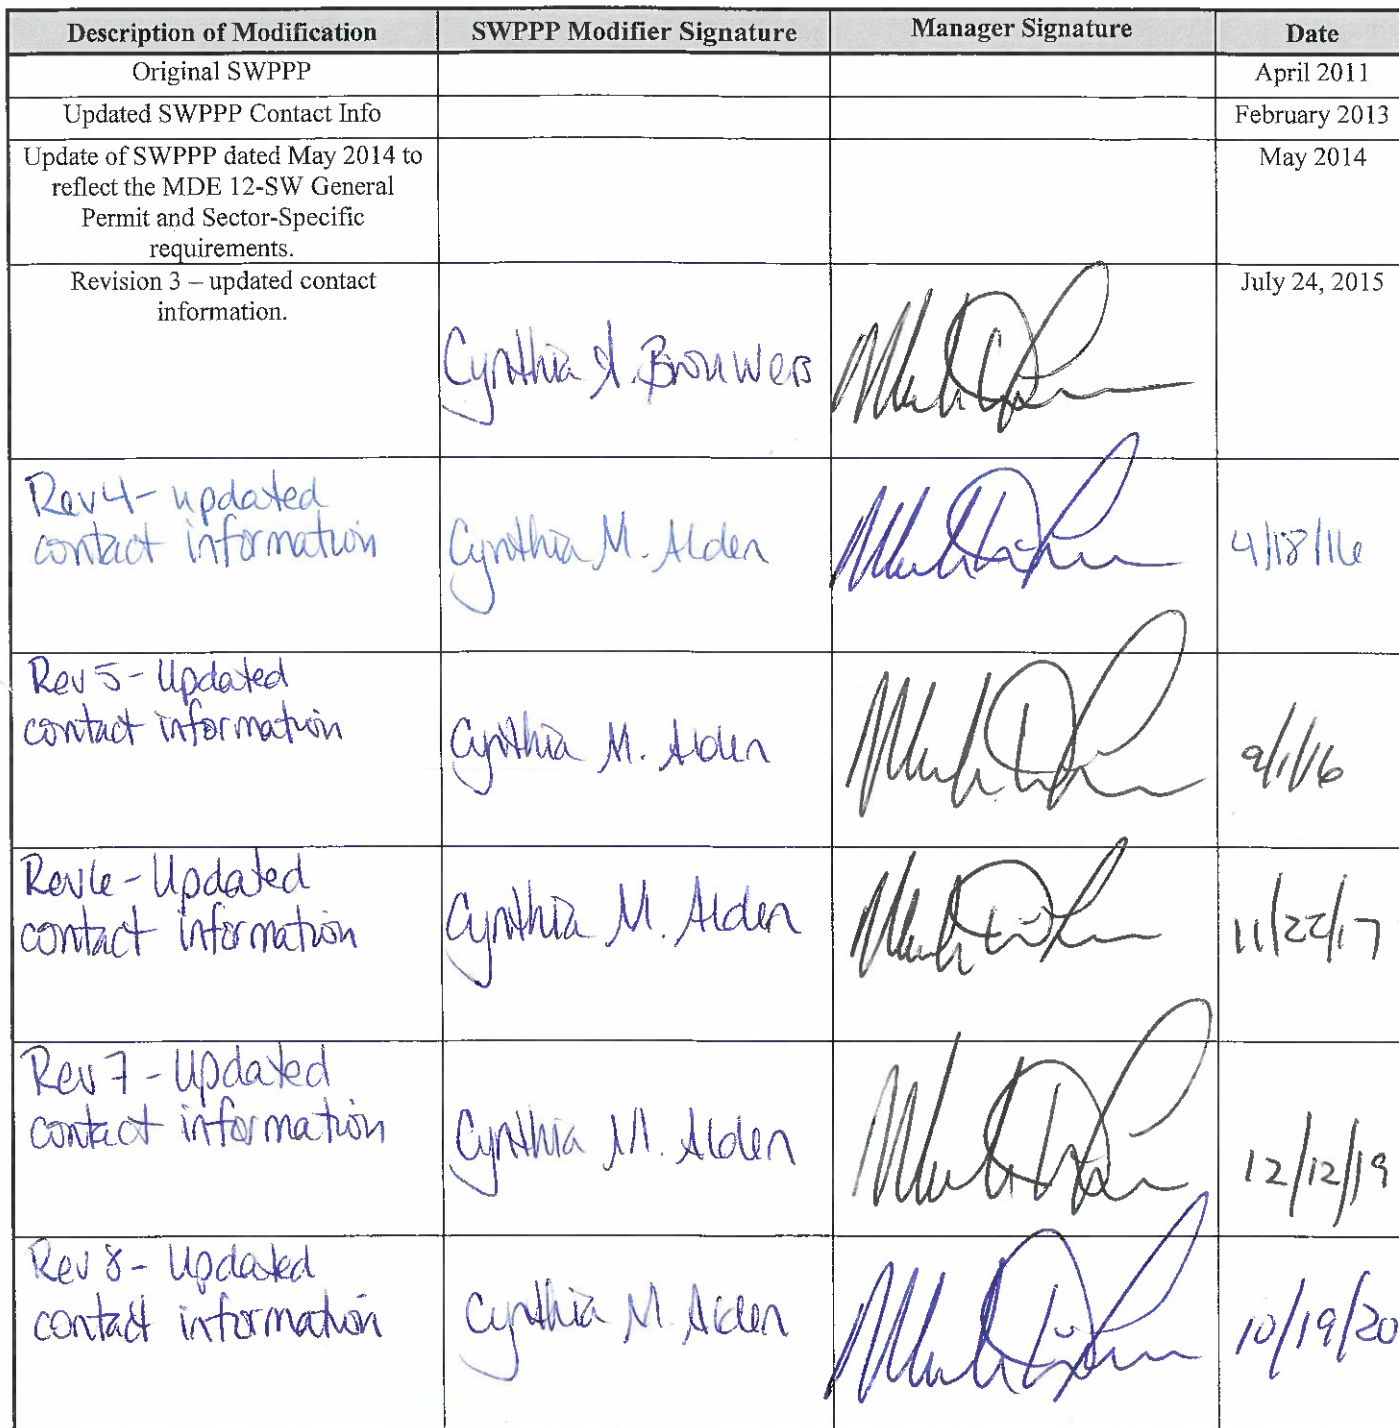 Description of Modification SWPPP Modifier Signature Manager Signature Date
Original SWPPP April 2011
Updated SWPPP Contact Info February 2013
Update of SWPPP dated May 2014 to May 2014
reflect the MDE 12-SW General
Permit and Sector-Specific
requirements.
Revision 3 – updated contact July 24, 2015
information.
Cynthia A. Brouwers
Rev4- updated
contact information Cynthia M. Alden 4/18/16
Rev 5- Updated
contact information Cynthia M. Alden 9/1/16
Rev6- Updated
contact information Cynthia M. Alden 11/22/17
Rev 7- Updated
contact information Cynthia M. Alden 12/12/19
Rev 8- Updated
contact information Cynthia M Alden 10/19/20